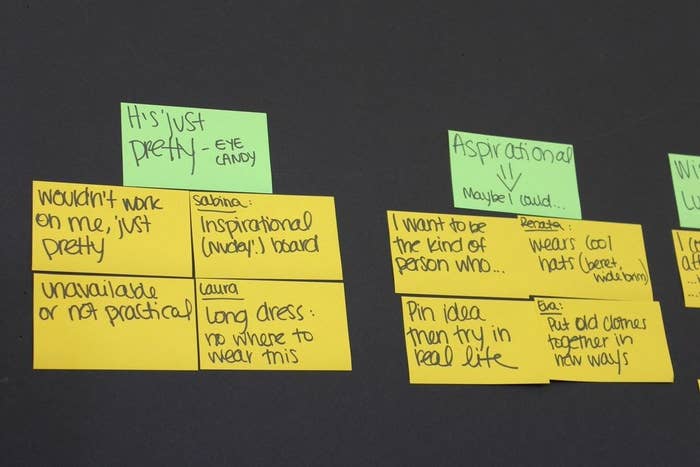 It's 'just
pretty - EYE
CANDY
wouldn't work
on me, 'just
pretty
Sabina:
Inspirational
(nudey?) board
unavailable
or not practical
Laura
Long dress:
no where to
wear this
Aspirational
Maybe I could...
I want to be
the kind of
person who...
Renata:
wears cool
hats (beret,
wide brim)
Pin idea
then try in
real life
Eva:
Put old clothes
together in
new ways